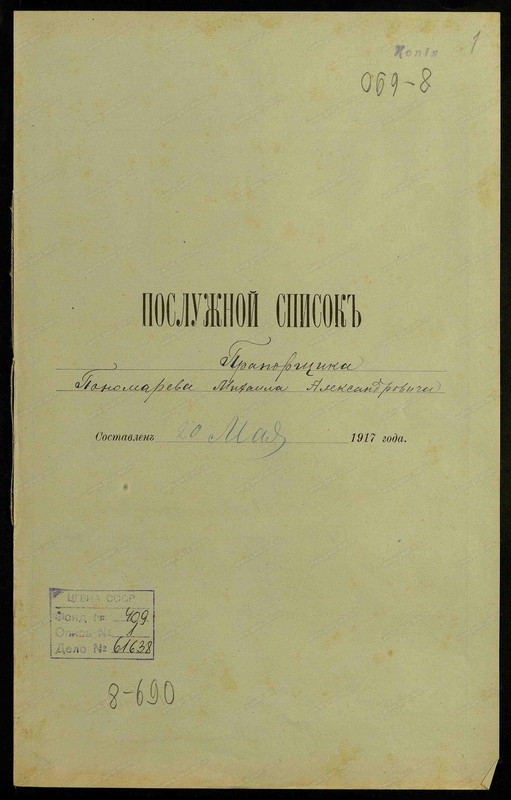 Копія
1
069-8
ПОСЛУЖНОЙ СПИСОКЪ
Прапорщика
Пономарева Михаила Александровича
Составленъ 20 Мая 1917 года.
ЦГВИА СССР
Фонд № 409
Опись № 1
Дело № 61638
8-690